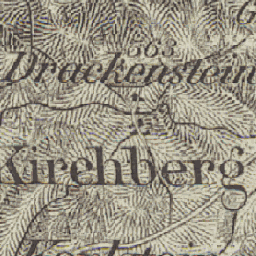 563
Drackenstein
Kirchberg